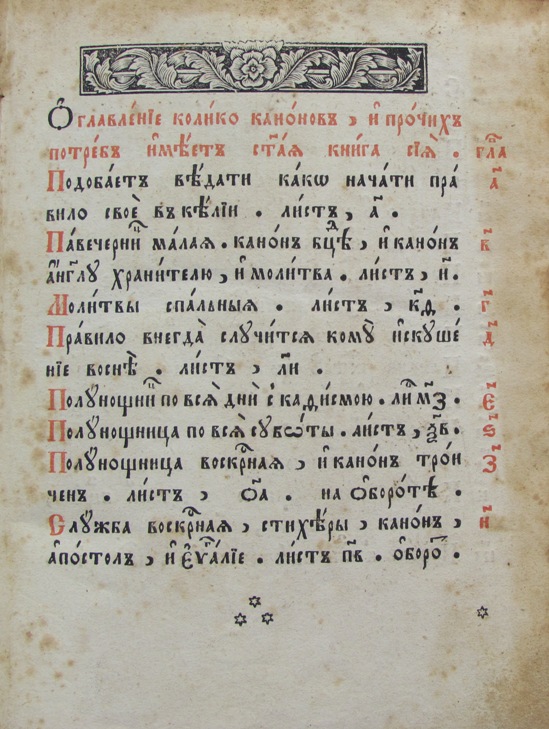 Ѻ҆главле́нїе коли́ко кано́новъ, и҆ про́чихъ
потре́бъ и҆мѣ́етъ ст҃а́ѧ кни́га сїѧ̀. гл҃а
Подоба́етъ вѣ́дати ка́кѡ нача́ти пра́ а҃
вило своѐ въ кѣ́лїи. ли́стъ, а҃.
Па́вечерни ма́лаѧ. кано́нъ бц҃ѣ, и҆ кано́нъ в҃
а҆́нгл҃у храни́телю, и҆ моли́тва. ли́стъ, и҃.
Моли́твы спа́льныѧ. ли́стъ, к҃д. г҃
Пра́вило внегда̀ случи́тсѧ кому̀ и҆скуше́ д҃
нїе воснѣ̀. ли́стъ, л҃и.
Полу́нощни по всѧ̀ дни̑ с кади́смою. ли м҃з. є҃
Полу́нощница по всѧ̀ суббѡ́ты. ли́стъ, ѯ҃в. ѕ҃
Полу́нощница воскр҃наѧ, и҆ кано́нъ тро́и з҃
ченъ. ли́стъ, ѻ҃а. на ѻ҆боро́тѣ.
Слу́жба воскр҃наѧ, стихѣ́ры, кано́нъ, и҃
а҆по́столъ, и҆ є҆ѵ҃а́лїе. ли́стъ п҃в. ѻ҆боро.